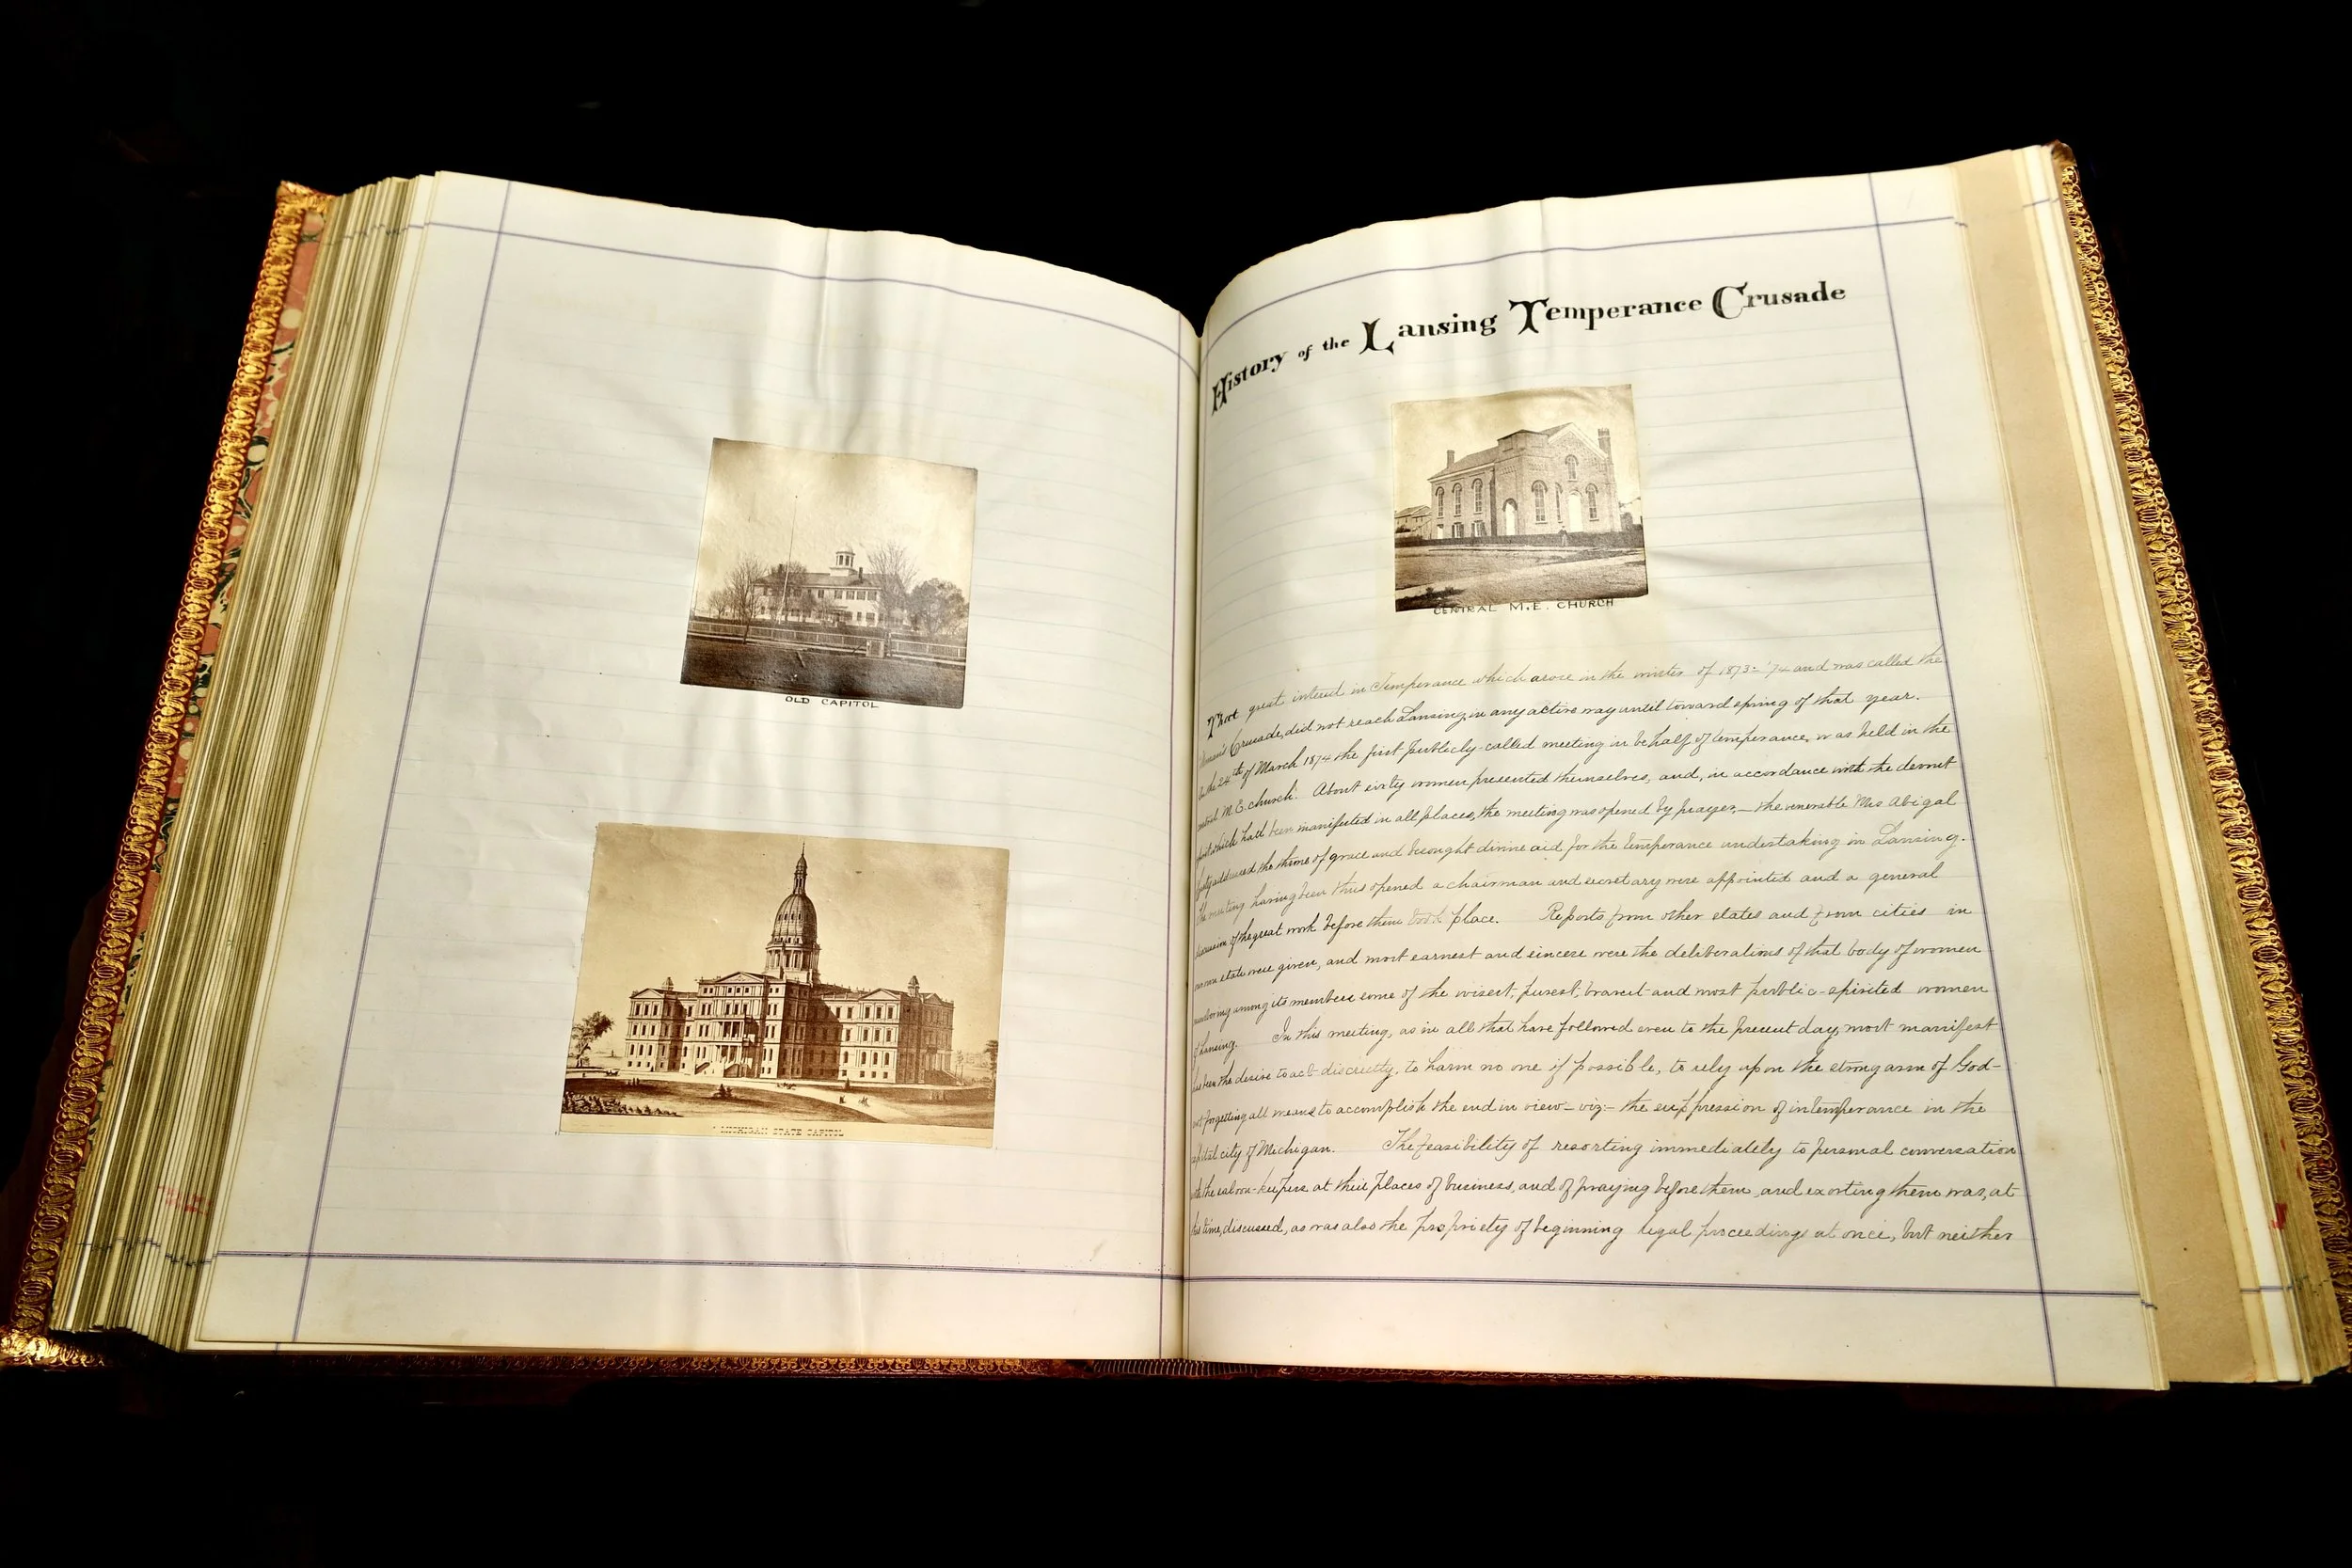 OLD CAPITOL
MICHIGAN STATE CAPITOL
History of the Lansing Temperance Crusade
CENTRAL M.E. CHURCH
That great interest in Temperance which arose in the winter of 1873-'74 and was called the
Crusade, did not reach Lansing, in any active way until toward spring of that year.
On the 24th of March 1874 the first publicly-called meeting in behalf of temperance, was held in the
M.E. church. About sixty women presented themselves, and, in accordance with the devout
which had been manifested in all places, the meeting was opened by prayer,— the venerable Mrs Abigal
the throne of grace and besought divine aid for the temperance undertaking in Lansing.
The meeting having been thus opened a chairman and secretary were appointed and a general
of the great work before them took place. Reports from other states and from cities in
own state were given, and most earnest and sincere were the deliberations of that body of women
numbering among its members some of the wisest, purest, bravest and most public-spirited women
of Lansing. In this meeting, as in all that have followed even to the present day, most manifest
has been the desire to act discreetly, to harm no one if possible, to rely upon the strong arm of God-
not forgetting all means to accomplish the end in view— viz:- the suppression of intemperance in the
capital city of Michigan. The feasibility of resorting immediately to personal conversation
with the saloon-keepers at their places of business, and of praying before them, and exorting them was, at
this time, discussed, as was also the propriety of beginning legal proceedings at once, but neither